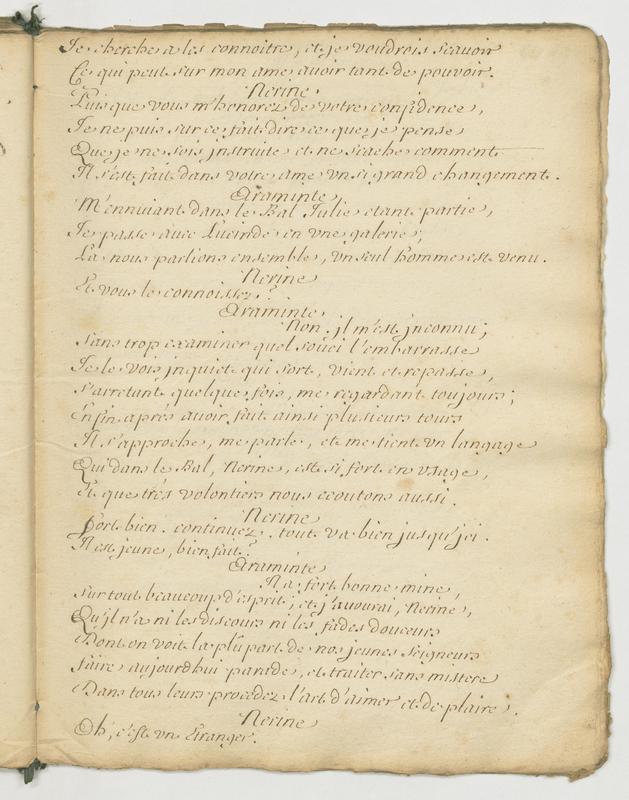 Je cherche a les connoitre, et je voudrois scavoir
Ce qui peut sur mon ame avoir tant de pouvoir.
Nerine
Puisque vous m'honorez de votre confidence,
Je ne puis sur ce fait dire ce que je pense
Que je ne sois jnstruite et ne scache comment
Il s'est fait dans votre ame un si grand changement.
Araminte
M'ennuiant dans le Bal Julie etant partie,
Je passe avec Lucinde en vne galerie;
La nous parlions ensemble, vn seul homme est venu.
Nerine
Et vous le connoissez?
Araminte
Non. jl m'est jnconnu;
Sans trop examiner quel souci l'embarrasse
Je le vois jnquiet qui sort, vient et repasse,
S'arretant quelque fois, me regardant toujours;
Enfin apres avoir fait ainsi plusieurs tours
Il s'approche, me parle, et me tient vn langage
Qui dans le Bal, Nerine, est si fort en vsage,
Et que très volontiers nous ecoutons aussi.
Nerine
Fort bien. continuez. tout va bien jusqu'jci.
Il est jeune, bien fait?
Araminte
Il a fort bonne mine,
Sur tout beaucoup d'esprit; et j'avourai, Nerine,
Qu'jl n'a ni les discours ni les fades douceurs
Dont on voit la plûpart de nos jeunes Seigneurs
faire aujourdhui parade, et traiter sans mistere
Dans tous leurs procedez l'art d'aimer et de plaire.
Nerine
Oh, c'est vn Etranger.